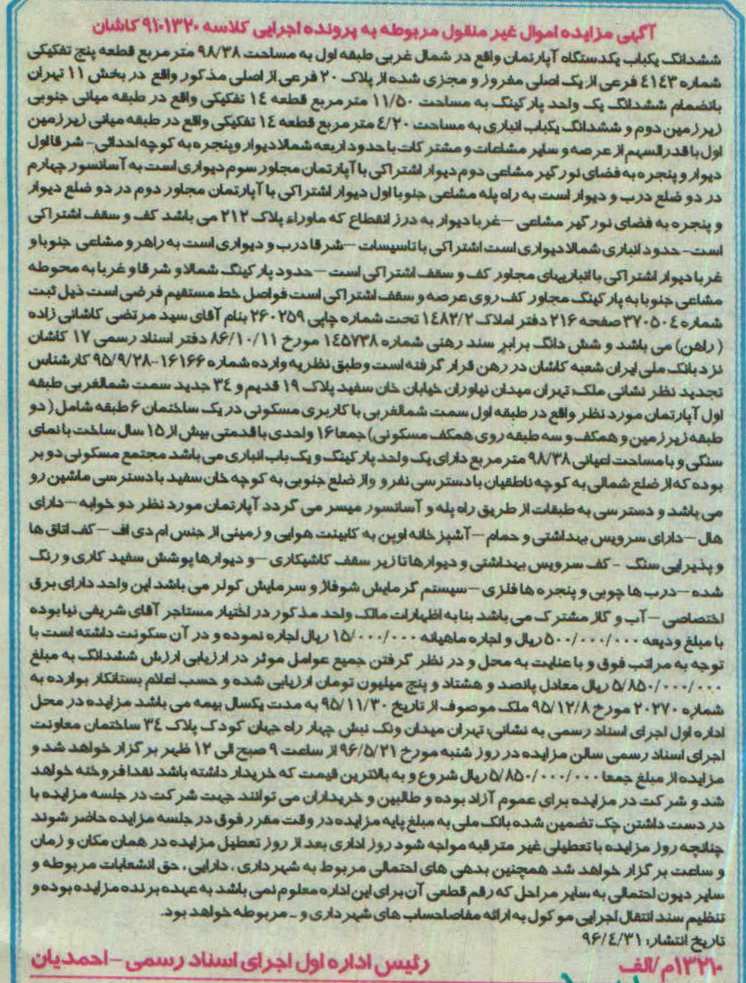 آگهی مزایده اموال غیر منقول مربوطه به پرونده اجرایی کلاسه ۹۱۰۱۳۲۰ کاشان
ششدانگ یکباب یکدستگاه آپارتمان واقع در شمال غربی طبقه اول به مساحت ۹۸/۳۸ متر مربع قطعه پنج تفکیکی
شماره ٤۱٤۳ فرعی از یک اصلی مفروز و مجزی شده از پلاک ۲۰ فرعی از اصلی مذکور واقع در بخش ۱۱ تهران
بانضمام ششدانگ یک واحد پارکینگ به مساحت ۱۱/۵۰ متر مربع قطعه ۱٤ تفکیکی واقع در طبقه میانی جنوبی
زیرزمین دوم و ششدانگ یکباب انباری به مساحت ٤/۲۰ متر مربع قطعه ۱٤ تفکیکی واقع در طبقه میانی زیرزمین
اول با قدرالسهم از عرصه و سایر مشاعات و مشترکات با حدود اربعه شمالا دیوار و پنجره به کوچه احداثی- شرقا اول
دیوار و پنجره به فضای نورگیر مشاعی دوم دیوار اشتراکی با آپارتمان مجاور سوم دیواری است به آسانسور چهارم
در دو ضلع درب و دیوار است به راه پله مشاعی جنوبا اول دیوار اشتراکی با آپارتمان مجاور دوم در دو ضلع دیوار
و پنجره به فضای نورگیر مشاعی –غربا دیوار به درز انقطاع که ماوراء پلاک ۲۱۲ می باشد کف و سقف اشتراکی
است- حدود انباری شمالا دیواری است اشتراکی با تاسیسات –شرقا درب و دیواری است به راهرو مشاعی جنوبا و
غربا دیوار اشتراکی با انباریهای مجاور کف و سقف اشتراکی است –حدود پارکینگ شمالا و شرقا و غربا به محوطه
مشاعی جنوبا به پارکینگ مجاور کف روی عرصه و سقف اشتراکی است فواصل خط مستقیم فرضی است ذیل ثبت
شماره ۳۷۰۵۰٤ صفحه ۲۱۶ دفتر املاک ۱٤۸۲/۲ تحت شماره چاپی ۲۶۰۲۵۹ بنام آقای سید مرتضی کاشانی زاده
( راهن) می باشد و شش دانگ برابر سند رهنی شماره ۱٤۵۷۳۸ مورخ ۸۶/۱۰/۱۱ دفتر اسناد رسمی ۱۷ کاشان
نزد بانک ملی ایران شعبه کاشان در رهن قرار گرفته است و طبق نظریه وارده شماره ۱۶۱۶۶-۹۵/۹/۲۸ کارشناس
تجدید نظر نشانی ملک: تهران میدان نیاوران خیابان خان سفید پلاک ۱۹ قدیم و ۳٤ جدید سمت شمالغربی طبقه
اول آپارتمان مورد نظر واقع در طبقه اول سمت شمالغربی با کاربری مسکونی در یک ساختمان ۶ طبقه شامل ( دو
طبقه زیرزمین و همکف و سه طبقه روی همکف مسکونی) جمعا ۱۶ واحدی با قدمتی بیش از ۱۵ سال ساخت با نمای
سنگی و با مساحت اعیانی ۹۸/۳۸ متر مربع دارای یک واحد پارکینگ و یک باب انباری می باشد مجتمع مسکونی دو بر
بوده که از ضلع شمالی به کوچه ناطقیان با دسترسی نفر رو و از ضلع جنوبی به کوچه خان سفید با دسترسی ماشین رو
می باشد و دسترسی به طبقات از طریق راه پله و آسانسور میسر می گردد آپارتمان مورد نظر دو خوابه –دارای
هال –دارای سرویس بهداشتی و حمام –آشپزخانه اوپن به کابینت هوایی و زمینی از جنس ام دی اف –کف اتاق ها
و پذیرایی سنگ - کف سرویس بهداشتی و دیوارها تا زیر سقف کاشیکاری –و دیوارها پوشش سفید کاری و رنگ
شده –درب ها چوبی و پنجره ها فلزی –سیستم گرمایش شوفاژ و سرمایش کولر می باشد این واحد دارای برق
اختصاصی –آب و گاز مشترک می باشد بنا به اظهارات مالک واحد مذکور در اختیار مستاجر آقای شریفی نیا بوده
با مبلغ ودیعه ۵۰۰/۰۰۰/۰۰۰ ریال و اجاره ماهیانه ۱۵/۰۰۰/۰۰۰ ریال اجاره نموده و در آن سکونت داشته است با
توجه به مراتب فوق و با عنایت به محل و در نظر گرفتن جمیع عوامل موثر در ارزیابی ارزش ششدانگ به مبلغ
۵/۸۵۰/۰۰۰/۰۰۰ ریال معادل پانصد و هشتاد و پنج میلیون تومان ارزیابی شده و حسب اعلام بستانکار بوارده به
شماره ۲۰۲۷۰ مورخ ۹۵/۱۲/۸ ملک موصوف از تاریخ ۹۵/۱۱/۳۰ به مدت یکسال بیمه می باشد مزایده در محل
اداره اول اجرای اسناد رسمی به نشانی: تهران میدان ونک نبش چهار راه جهان کودک پلاک ۳٤ ساختمان معاونت
اجرای اسناد رسمی سالن مزایده در روز شنبه مورخ ۹۶/۵/۲۱ از ساعت ۹ صبح الی ۱۲ ظهر برگزار خواهد شد و
مزایده از مبلغ جمعا ۵/۸۵۰/۰۰۰/۰۰۰ ریال شروع و به بالاترین قیمت که خریدار داشته باشد نقدا فروخته خواهد
شد و شرکت در مزایده برای عموم آزاد بوده و طالبین و خریداران می توانند جهت شرکت در جلسه مزایده با
در دست داشتن چک تضمین شده بانک ملی به مبلغ پایه مزایده در وقت مقرر فوق در جلسه مزایده حاضر شوند
چنانچه روز مزایده با تعطیلی غیر مترقبه مواجه شود روز اداری بعد از روز تعطیل مزایده در همان مکان و زمان
و ساعت برگزار خواهد شد همچنین بدهی های احتمالی مربوط به شهرداری ، دارایی ، حق انشعابات مربوطه و
سایر دیون احتمالی به سایر مراحل که رقم قطعی آن برای این اداره معلوم نمی باشد به عهده برنده مزایده بوده و
تنظیم سند انتقال اجرایی موکول به ارائه مفاصاحساب های شهرداری و .. مربوطه خواهد بود.
تاریخ انتشار: ۹۶/٤/۳۱
۱۳۲۱۰م/الف رئیس اداره اول اجرای اسناد رسمی –احمدیان